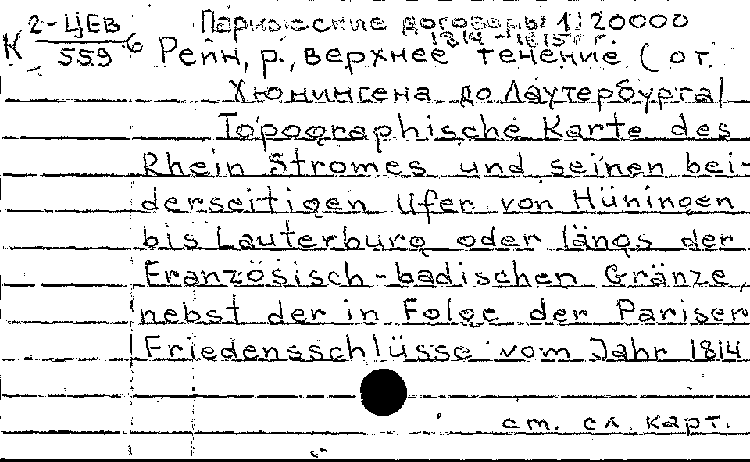 К 2-ЦЕВ
559 6
Парижские договоры 1:20000
1814-1815 г.
Рейн, р., верхнее течение (от
Хюнингена до Лаутербурга)
Topographische Karte des
Rhein Stromes und seinen bei-
derseitigen Ufer von Hüningen
bis Lauterburg oder längs der
Französisch-badischen Gränze,
nebst der in Folge der Pariser
Friedensschlüsse vom Jahr 1814
см. сл. карт.